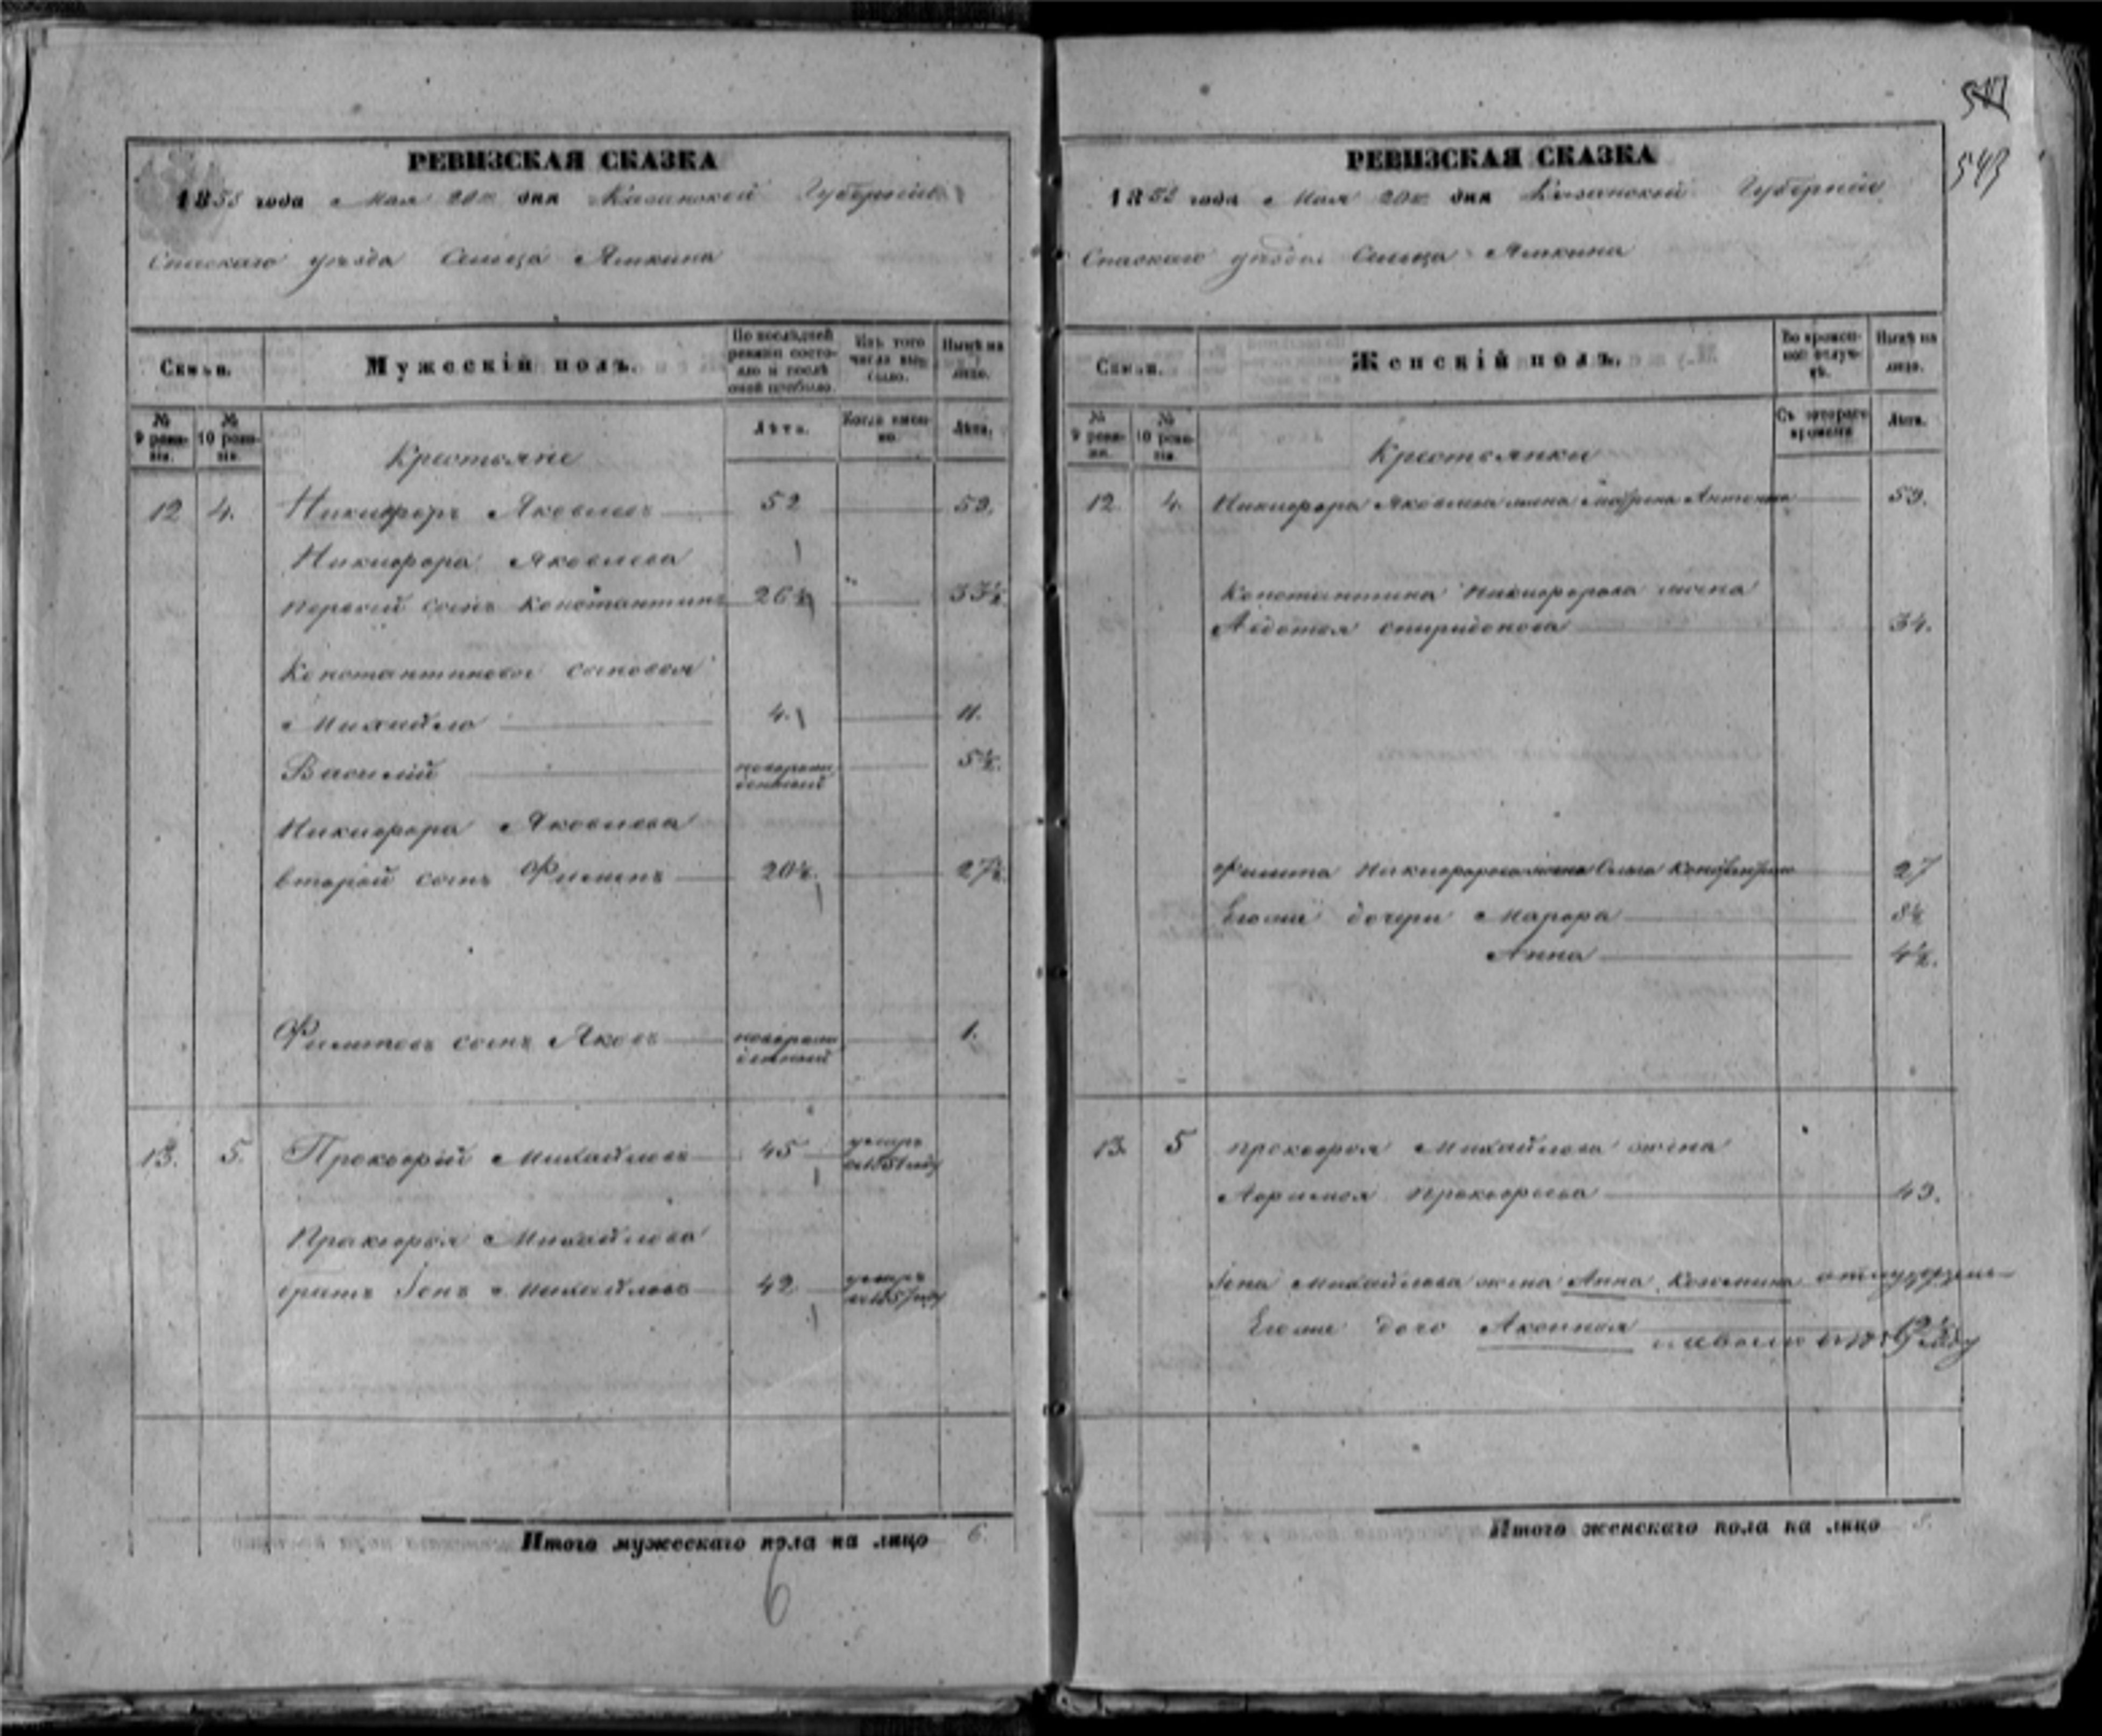 РЕВИЗСКАЯ СКАЗКА
1858 года Мая 20го дня Казанской Губернии
Спаскаго уѣзда Сельца Ямкина
Семьи.
Мужескій полъ.
По послѣдней ревизіи состояло и послѣ оной прибыло.
Изъ того числа выбыло.
Нынѣ на лицо.
№ 9 ревизіи.
№ 10 ревизіи.
Лѣта.
Когда именно.
Лѣта.
Крестьяне
12 4. Никифоръ Яковлевъ 52 59.
Никифора Яковлева
первой сынъ Константинъ 26½ 33½
Константиновы сыновья
Михайло 4. 11.
Василій новорожденный 5½.
Никифора Яковлева
второй сынъ Филипъ 20½. 27½
Филиповъ сынъ Яковъ новорожденный 1.
13. 5. Прокофій Михайловъ 45 умеръ въ 1851 году
Прокофья Михайлова
братъ Іонъ Михайловъ 42 умеръ въ 1857 году
Итого мужескаго пола на лицо 6.
6
543
РЕВИЗСКАЯ СКАЗКА
1858 года Мая 20го дня Казанской Губерніи
Спаскаго уѣзда Сельца Ямкина
Семьи.
Женскій полъ.
Во временной отлучкѣ.
Нынѣ на лицо.
№ 9 ревизіи.
№ 10 ревизіи.
Съ котораго времени
Лѣта.
Крестьянки
12. 4. Никифора Яковлева жена Антонова 59.
Константина Никифорова жена
Авдотья спиридонова 34.
Филипа Никифорова жена 27
Егоже дочери Марфа 8½
Анна 4½.
13. 5 Прокофья Михайлова жена
Афимья Прокофьева 49.
Іона Михайлова жена Анна
Егоже дочь
Итого женскаго пола на лицо 8.